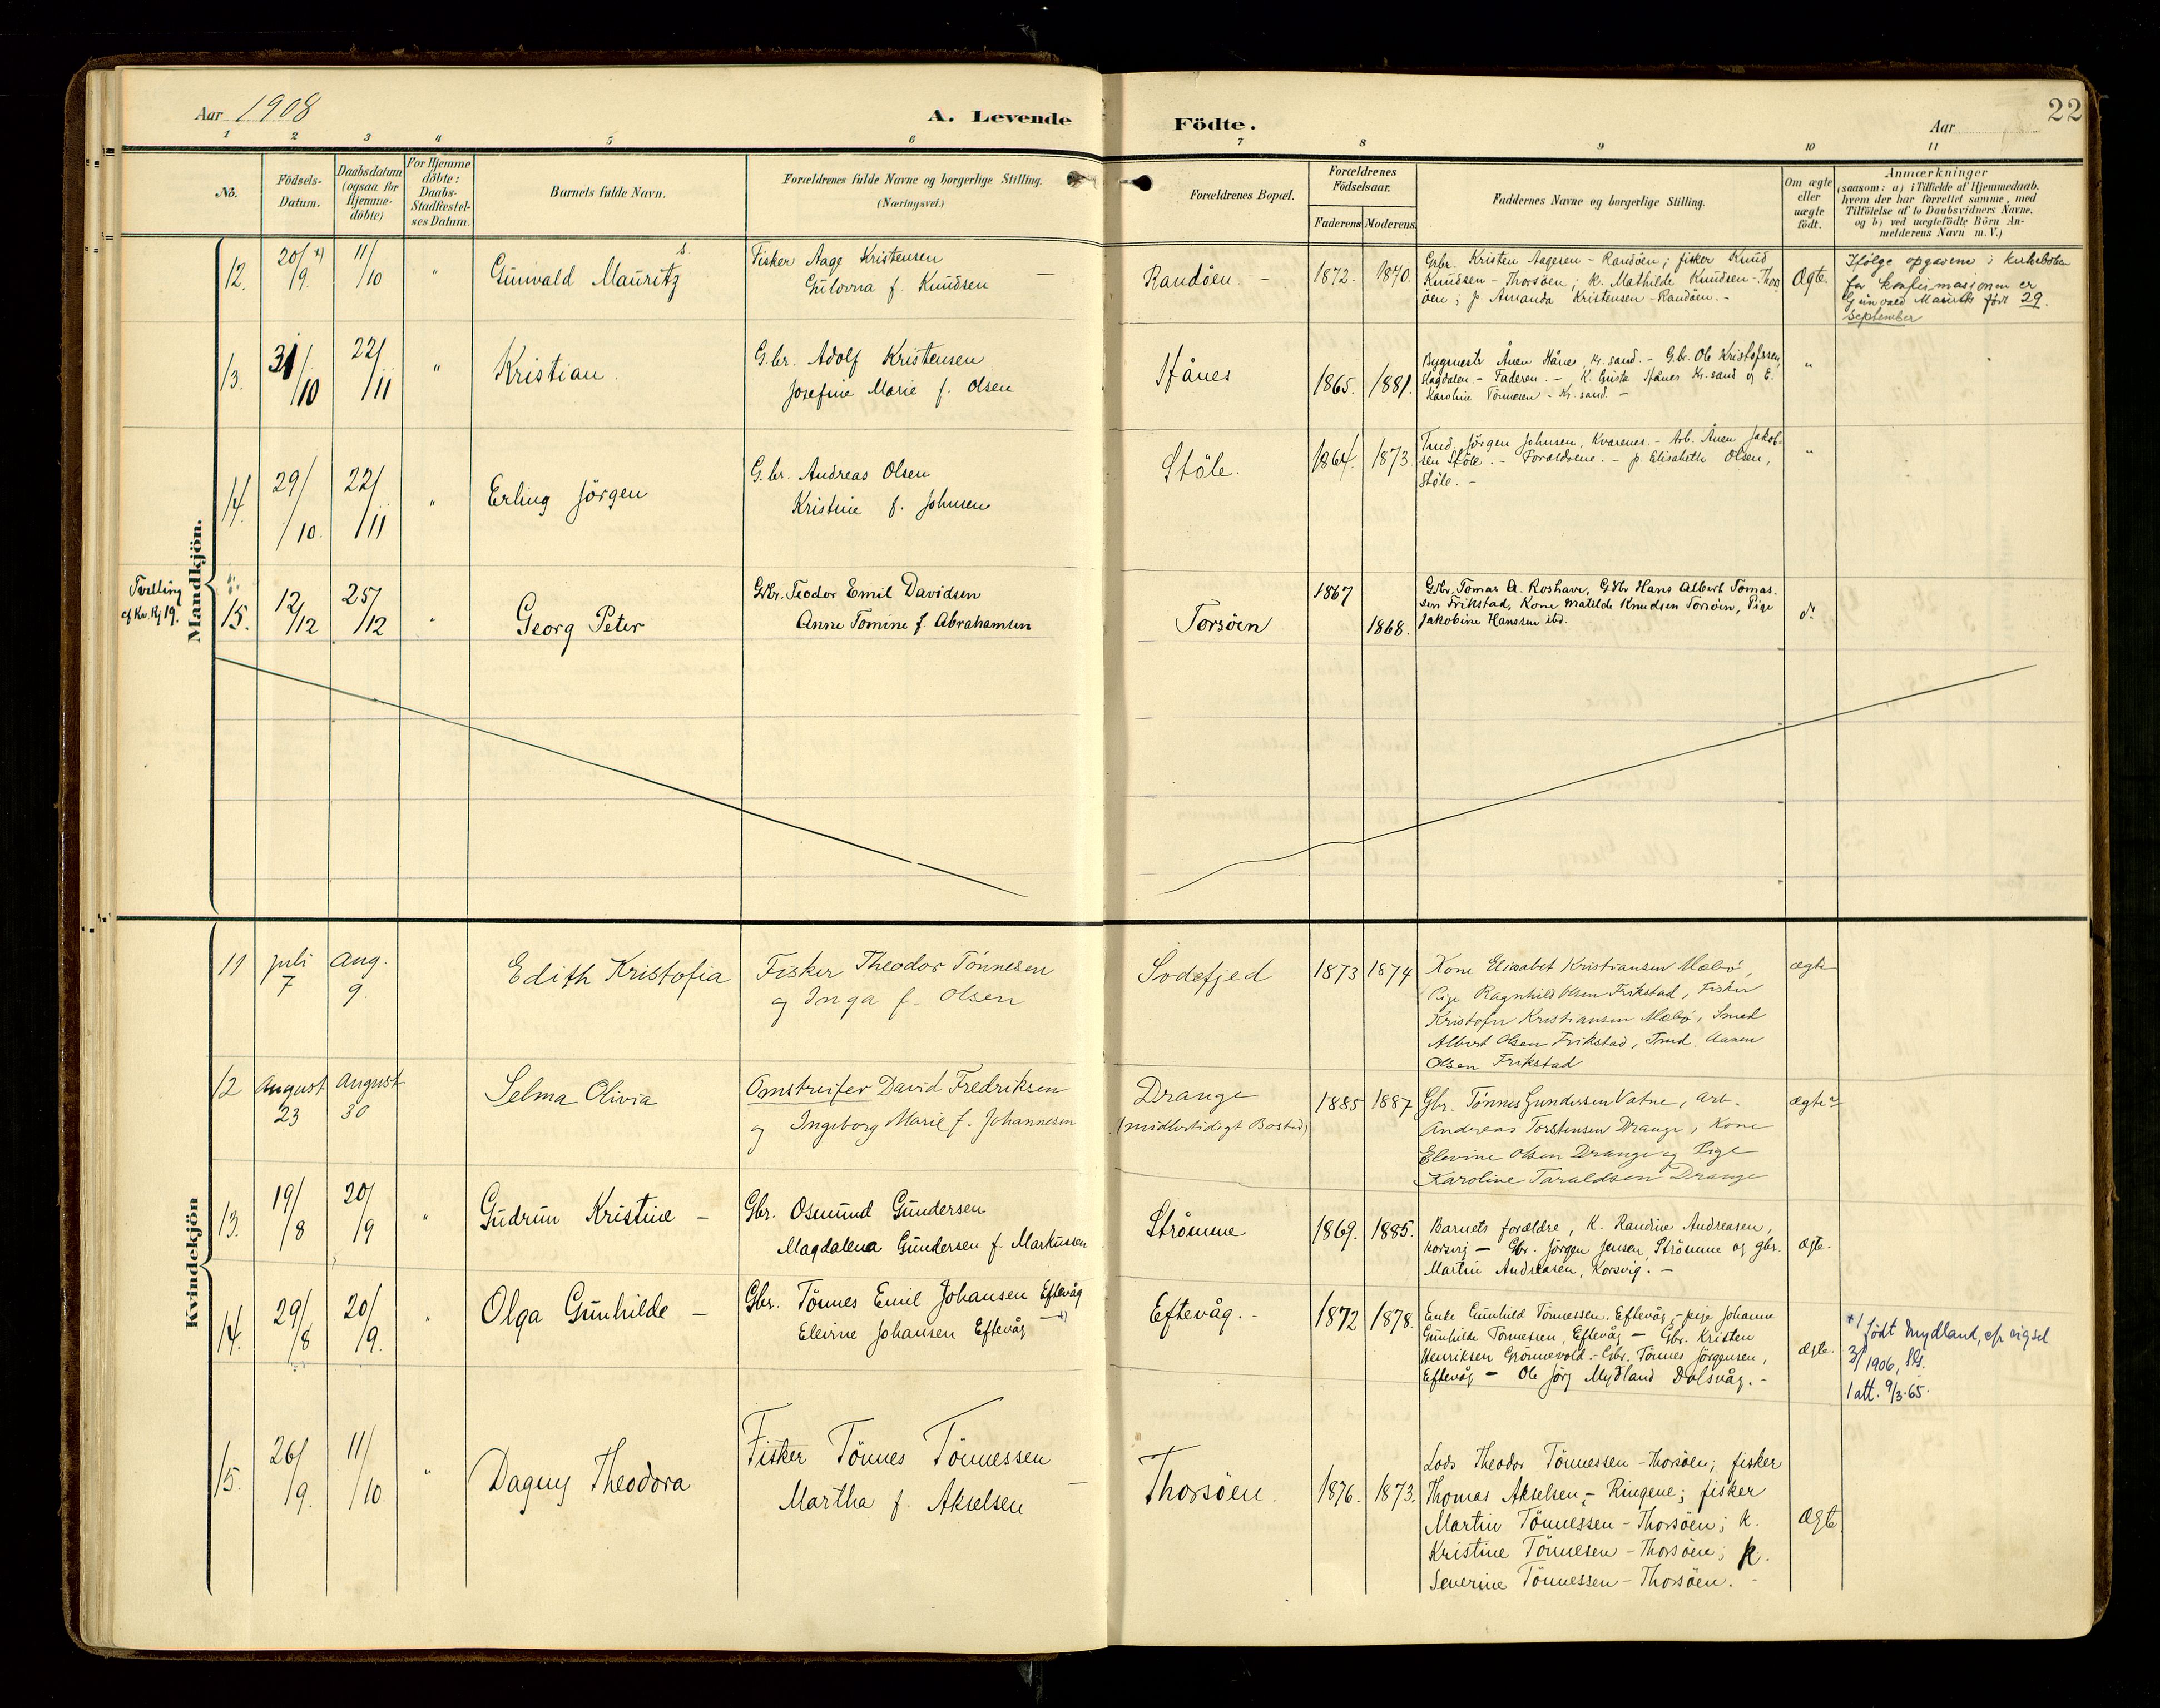 Aar 1908
A. Levende
Födte.
Aar
22
1 2 3 4 5 6 7 8 9 10 11
No.
Födsels-
Datum.
Daabsdatum
(ogsaa for
Hjemme-
döbte)
For Hjemme
döbte:
Daabs-
Stadfæstel-
ses Datum.
Barnets fulde Navn.
Forældrenes fulde Navne og borgerlige Stilling.
(Næringsvei.)
Forældrenes Bopæl.
Forældrenes
Födselsaar.
Faderens Moderens
Faddernes Navne og borgerlige Stilling.
Om ægte
eller
uægte
födt.
Anmærkninger
(saasom: a) i Tilfælde af Hjemmedaab.
hvem der har forrettet samme, med
Tilföielse af to Daabsvidners Navne.
og b) ved uægtefödte Börn An-
melderens Navn m. V.)
Mandkjön.
12. 20/9. *) 11/10 "
Gunvald Mauritz
Fisker Aage Kristensen
Gulovna f. Knudsen
Randöen. -
1872. 1870.
Gbr. Kristen Aagesen - Randöen; fisker Knud
Knudsen - Thorsöen; k. Mathilde Knudsen - Thors
öen; p. Amanda Kristensen - Randöen. -
Ægte.
Ifölge opgavene i kirkeboken
for konfirmasjonen er
Gunvald Mauritz født 29.
September
13. 31/10 22/11 "
Kristian
G.br. Adolf Kristensen
Josefine Marie f. Olsen
Hånes
1865. 1881.
Bygmestr Ånen Hånes, Kr.sand. - G.br. Ole Kristofssen,
Hagdalen. - Faderen. - K. Gusta Hånes Kr.sand og E.
Karoline Tönnesen - Kr.sand. -
"
14. 29/10. 22/11 "
Erling Jörgen
G.br. Andreas Olsen
Kristine f. Johnsen
Stöle.
1864. 1873.
Tmd. Jörgen Johnsen, Kvarenes. - Arb. Ånen Jakob-
sen Stöle. - Forældrene. - p. Elisabeth Olsen,
Stöle. -
"
Tvilling
cf Kv. Kj 19.
15. 12/12 25/12 "
Georg Peter
Gbr. Teodor Emil Davidsen
Anne Tomine f. Abrahamsen
Torsöen
1867
1868.
Gbr. Tomas A. Roshave, Gbr Hans Albert Tomas-
sen Frikstad, Kone Matilde Knudsen Torsöen, Pige
Jakobine Hanssen ibd.
do
Kvindekjön
11 juli 7 Aug. 9.
Edith Kristofia
Fisker Theodor Tönnesen
og Inga f. Olsen
Sodefjed
1873 1874
Kone Elisabet Kristiansen Mæbö,
Pige Ragnhild Olsen Frikstad, Fisker
Kristofer Kristiansen Mæbö, Smed
Albert Olsen Frikstad, Tmd. Aanen
Olsen Frikstad
ægte
12 August 23 August 30
Selma Olivia
Omstreifer David Fredriksen
og Ingeborg Marie f. Johannesen
Drange
(midlertidigt Bosted)
1885 1887
Gbr. Tönnes Gundersen Vatne, Arb.
Andreas Torstensen Drange, Kone
Elevine Olsen Drange og Pige
Karoline Taraldsen Drange
ægte
13. 19/8 20/9 "
Gudrun Kristine -
Gbr. Osmund Gundersen
Magdalena Gundersen f. Markussen
Strömme
1869. 1885.
Barnets forældre, K. Randine Andreasen,
Korsvig - Gbr. Jörgen Jensen, Strömme og gbr.
Martin Andreasen, Korsvig. -
ægte.
14. 29/8 20/9. "
Olga Gunhilde -
Gbr. Tönnes Emil Johansen Eftevåg
Elevine Johansen Eftevåg - *)
Eftevåg. -
1872 1878.
Enke Gunhild Tönnessen, Eftevåg, - pige Johanne
Gunhilde Tönnessen, Eftevåg - Gbr. Kristen
Henriksen Grönnevold. - Gbr. Tönnes Jörgensen,
Eftevåg - Ole Jörg Mydland Dalsvåg. -
ægte.
*/ født Mydland, efr vigsel
1906,
1 att. 9/3.65.
15. 26/9. 11/10 "
Dagny Theodora
Fisker Tönnes Tönnessen
Martha f. Akselsen
Thorsöen.
1876. 1873.
Lods Theodor Tönnessen - Thorsöen; fisker
Thomas Akselsen, - Ringene; fisker
Martin Tönnessen - Thorsöen; k.
Kristine Tönnesen - Thorsöen; k.
Severine Tönnessen - Thorsöen. -
Ægte